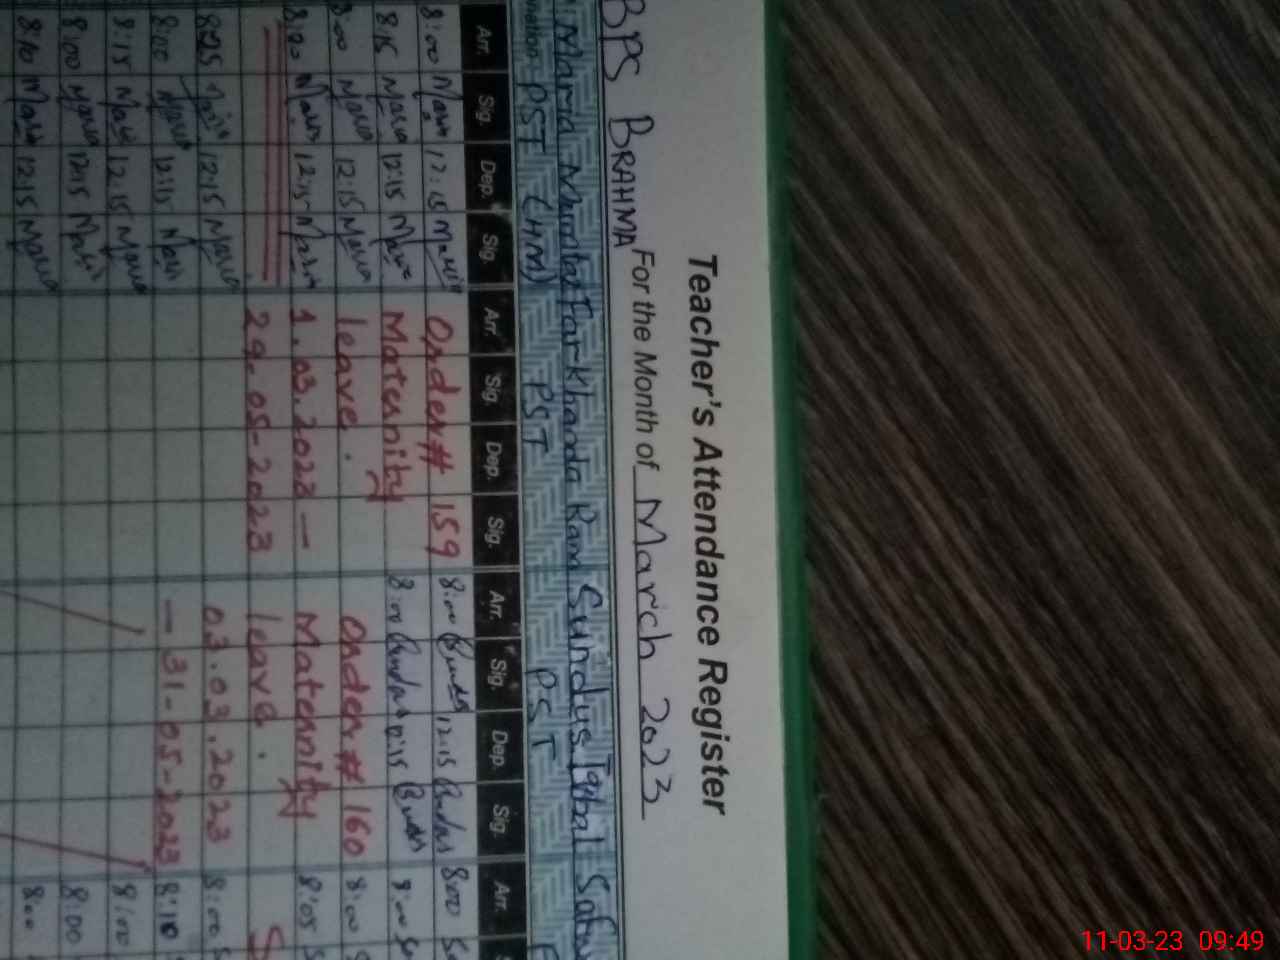 Teacher's Attendance Register
BPS BRAHMA For the Month of March 2023
Maria Mumtaz Farkhanda Rani Sundus Iqbal
PST (HM) PST PST
Arr. Sig. Dep. Sig. Arr. Sig. Dep. Sig. Arr. Sig. Dep. Sig. Arr.
8:00 Maria 12:15 Maria Order # 159 8:00 Sundas 12:15 Sundas 8:00
8:15 Maria 12:15 Maria Maternity 8:00 Sundas 12:15 Sundas 8:00
8:00 Maria 12:15 Maria leave. Order # 160 8:00
Maria 12:15 Maria 1.03.2023 — Maternity 8:05
29-05-2023 leave.
8:25 Maria 12:15 Maria 03.03.2023 8:00
8:00 Maria 12:15 Maria — 31-05-2023 8:10
8:15 Maria 12:15 Maria 8:00
8:00 Maria 12:15 Maria 8:00
8:10 Maria 12:15 Maria 8:00
11-03-23 09:49